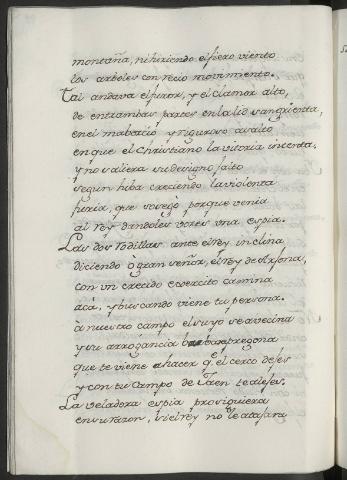 montaña, ni hiriendo el fiero viento
los arboles con recio movimiento.
Tal andava el furor, y el clamor alto,
de entrambas partes en la lid sangrienta,
en el mal and riguroso asalto
en que el Christiano la vitoria intenta.
y no saliera su designo falto
segun hiba creciendo la violenta
furia, que sosegò porque venia
al rey dandoles vozes una espia.
Las dos rodillas ante el rey inclina,
diciendo ò gran señor, el rey de
con un crecido exercito camina
acà, y buscando viene tu persona.
à nuestro campo el suyo se avecina
y su arrogancia barbara pregona
que te viene a hacer qe. el cerco dejes
y con tu campo de Jaen te alejes.
La veladora espia prosiguiera
en su razon, si el rey no le atajara